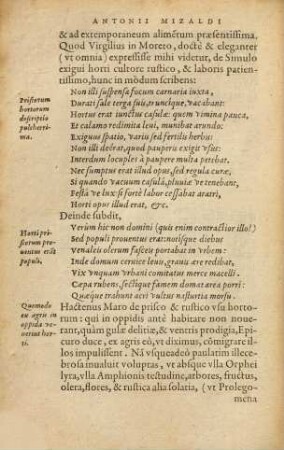 ANTONII MIZALDI
& ad extemporaneum alimẽtum præsentissima.
Quod Virgilius in Moreto, doctè & eleganter
(vt omnia) expressisse mihi videtur, de Simulo
exigui horti cultore rustico, & laboris patien-
tissimo, hunc in modũm scribens:
Priscorum
hortorum
descriptio
pulcherri-
ma.
Non illi suspensa focum carnaria iuxta,
Durati sale terga suis, truncique, vacabant:
Hortus erat iunctus casulæ: quem vimina pauca,
Et calamo rediuiua leui, munibat arundo:
Exiguus spatio, variis sed fertilis herbis:
Non illi deërat, quod pauperis exigit vsus:
Interdum locuples à paupere multa petebat.
Nec sumptus erat illud opus, sed regula curæ,
Si quando vacuum casulà, pluuiæ ve tenebant,
Festà ve lux: si fortè labor cessabat aratri,
Horti opus illud erat, &c.
Deinde subdit,
Horti pri-
scorum pro-
uentus erãt
populi.
Verùm hic non domini (quis enim contractior illo?)
Sed populi prouentus erat: nonísque diebus
Venaleis olerum fasceis portabat in vrbem:
Inde domum ceruice leuis, grauis ære redibat,
Vix vnquam vrbani comitatus merce macelli.
Cæpa rubens, sectíque famem domat area porri:
Quæque trahunt acri vultus nasturtia morsu.
Quomodo
ex agris in
oppida ve-
nerint hor-
ti.
Hactenus Maro de prisco & rustico vsu horto-
rum: qui in oppidis antè habitare non noue-
rant, quàm gulæ delitiæ, & ventris prodigia, Epi
curo duce, ex agris eò, vt diximus, cómigrare il-
los impulissent. Nã vsqueadeò paulatim illece-
brosa inualuit voluptas, vt absque vlla Orphei
lyra, vlla Amphionis testudine, arbores, fructus,
olera, flores, & rustica alia solaria, (vt Prolego-
mena